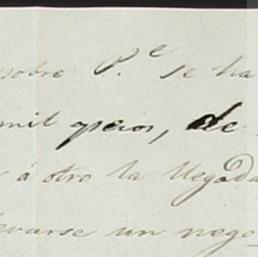 sobre P.e se ha
mil pesos, de
á otro la llegada
levarse un nego